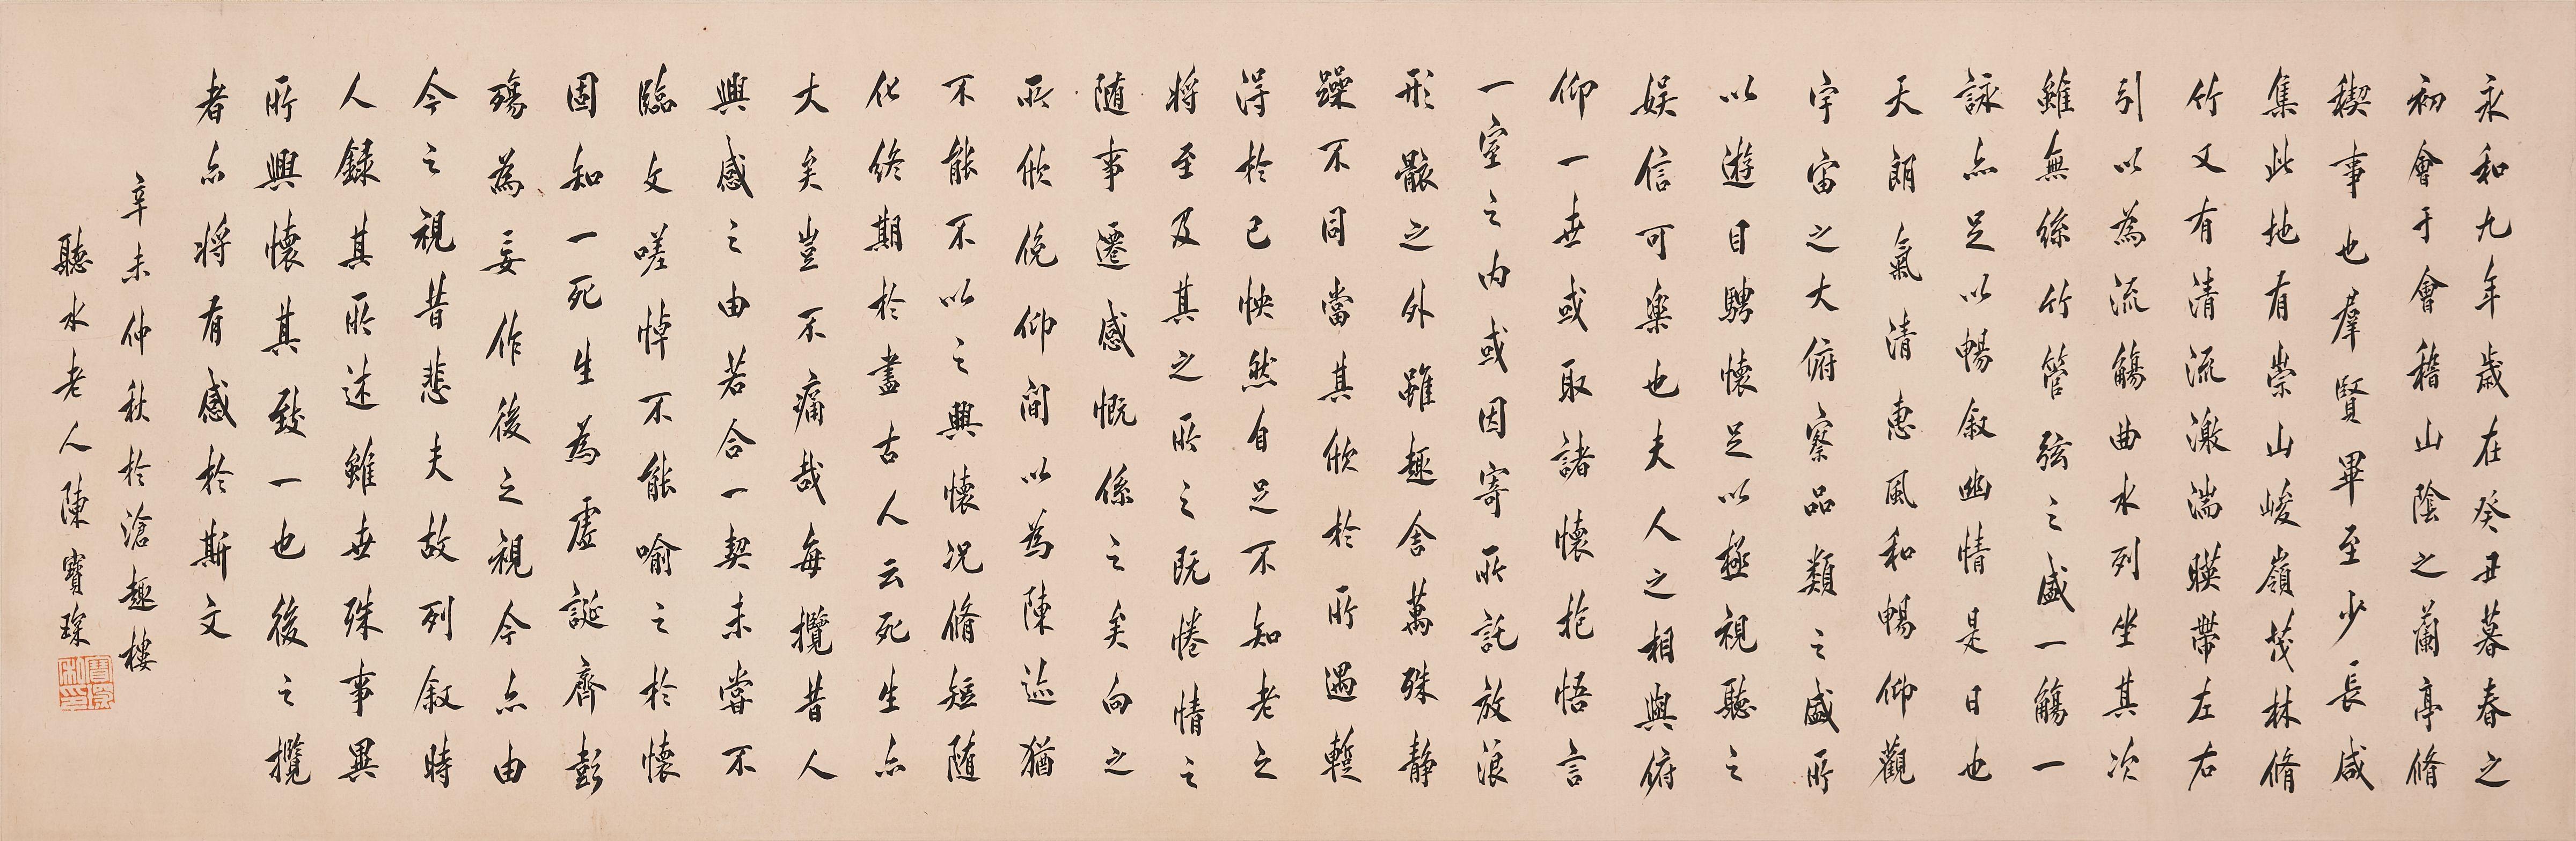 永和九年歲在癸丑暮春之
初會于會稽山陰之蘭亭脩
稧事也羣賢畢至少長咸
集此地有崇山峻嶺茂林脩
竹又有清流激湍暎帶左右
引以為流觴曲水列坐其次
雖無絲竹管弦之盛一觴一
詠亦足以暢敘幽情是日也
天朗氣清惠風和暢仰觀
宇宙之大俯察品類之盛所
以遊目騁懷足以極視聽之
娛信可樂也夫人之相與俯
仰一世或取諸懷抱悟言
一室之內或因寄所託放浪
形骸之外雖趣舍萬殊靜
躁不同當其欣於所遇蹔
得於己怏然自足不知老之
將至及其之所之既惓情之
隨事遷感慨係之矣向之
所欣俛仰間以為陳迹猶
不能不以之興懷況脩短隨
化終期於盡古人云死生亦
大矣豈不痛哉每攬昔人
興感之由若合一契未嘗不
臨文嗟悼不能喻之於懷
固知一死生為虛誕齊彭
殤為妄作後之視今亦由
今之視昔悲夫故列敘時
人錄其所述雖世殊事異
所興懷其致一也後之攬
者亦將有感於斯文
辛未仲秋於滄趣樓
聽水老人陳寶琛